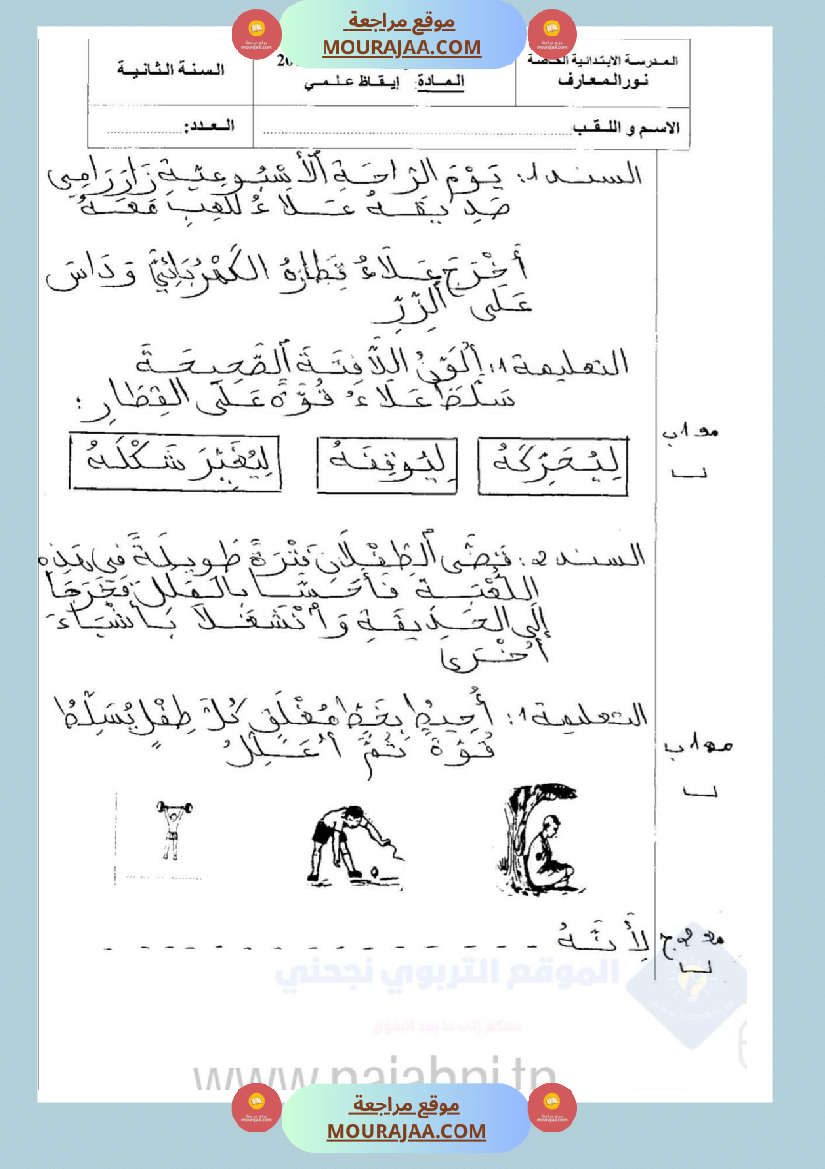 موقع مراجعة
MOURAJAA.COM
المدرسة الابتدائية الخاصة
نور المعارف
المادة: إيقاظ علمي
السنة الثانية
الاسم و اللقب
العدد:
السند 1: يَوْمَ الرَّاحَةِ الْأُسْبُوعِيَّةِ زَارَ رَامِي
صَدِيقَهُ عَلَاءُ لِلَّعِبِ مَعَهُ
أَخْرَجَ عَلَاءُ قِطَارَهُ الكَهْرُبَائِيَّ وَدَاسَ
عَلَى الزِّرِّ
التعليمة 1: أُلَوِّنُ اللَّافِتَةَ الصَّحِيحَةَ
سَلَّطَ عَلَاءُ قُوَّةً عَلَى القِطَارِ:
مع 1 ب
لِيُحَرِّكَهُ
لِيُوقِفَهُ
لِيُغَيِّرَ شَكْلَهُ
السند 2: قَضَّى الطِّفْلَانِ فَتْرَةً طَوِيلَةً فِي هَذِهِ
اللُّعْبَةِ فَأَحَسَّا بِالمَلَلِ فَخَرَجَا
إِلَى الحَدِيقَةِ وَانْشَغَلَا بِأَشْيَاءَ
أُخْرَى
التعليمة 1: أُحِيطُ بِخَطٍّ مُغْلَقٍ كُلَّ طِفْلٍ يُسَلِّطُ
قُوَّةً ثُمَّ أُعَلِّلُ
مع 1 ب
لِأَنَّهُ
مع 2 ج
الموقع التربوي نجحني
معكم إلى ما بعد التفوق
www.najahni.tn
موقع مراجعة
MOURAJAA.COM